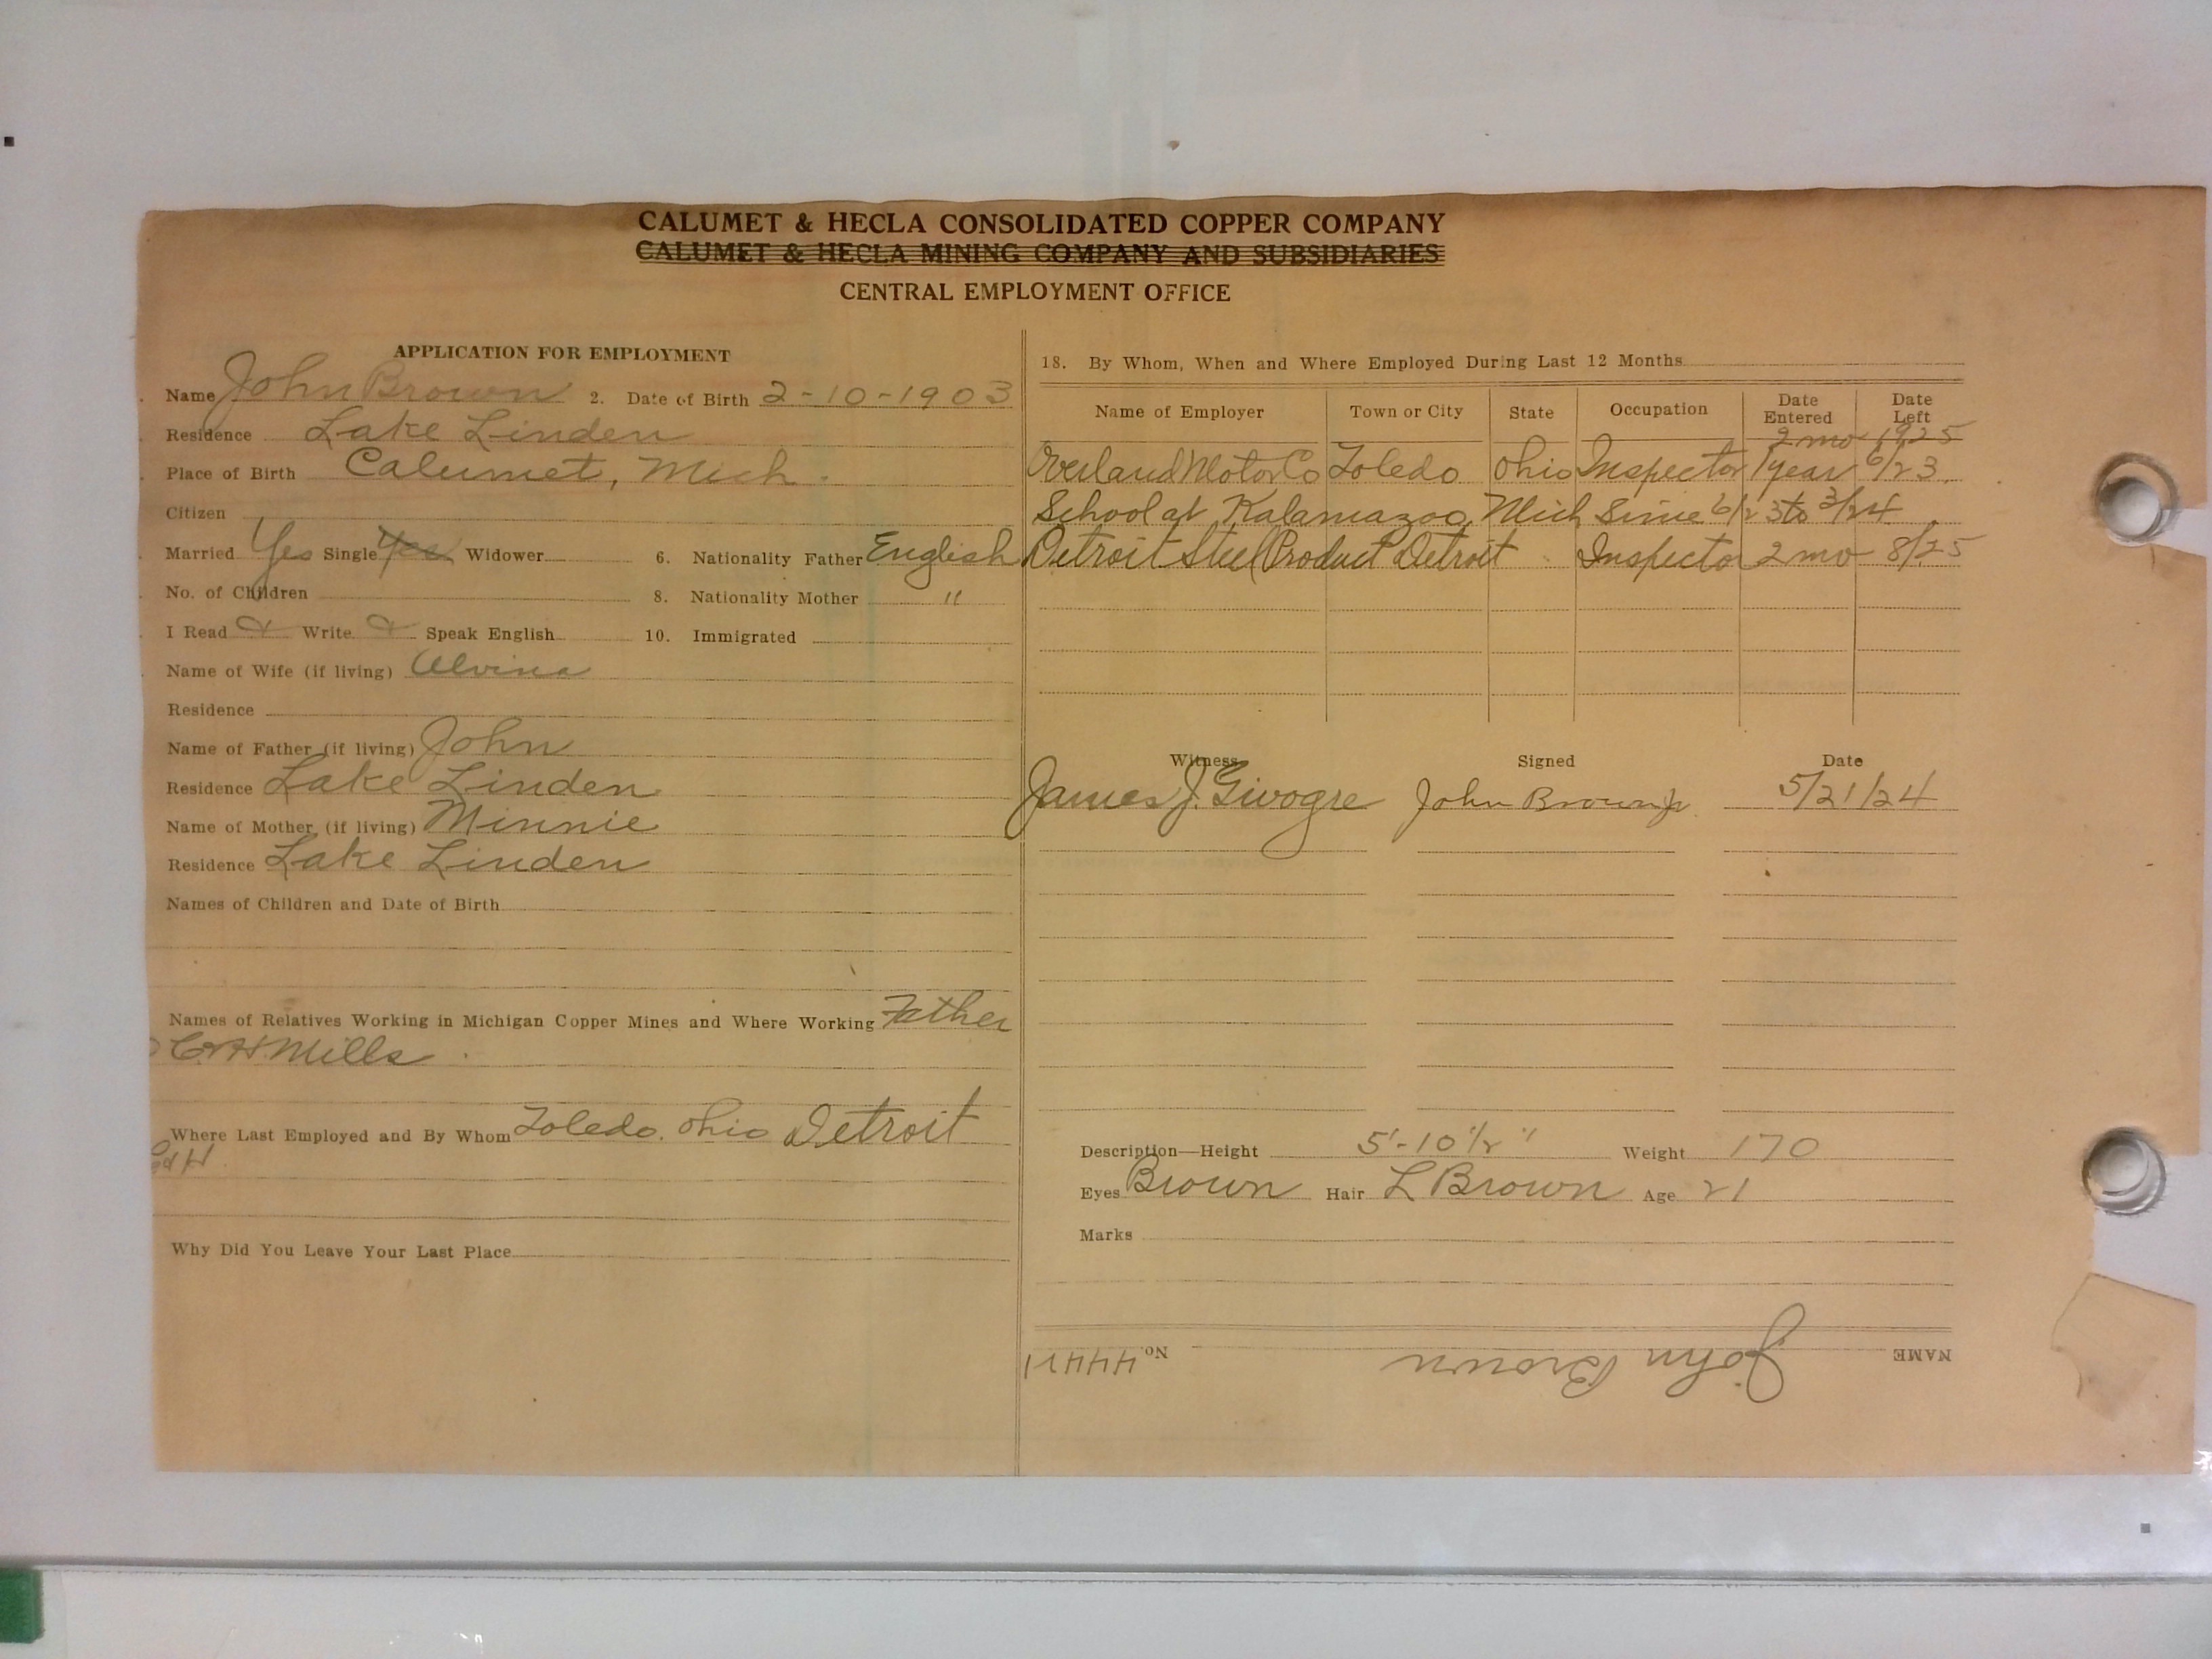 CALUMET & HECLA CONSOLIDATED COPPER COMPANY
CALUMET & HECLA MINING COMPANY AND SUBSIDIARIES
CENTRAL EMPLOYMENT OFFICE
APPLICATION FOR EMPLOYMENT
Name John Brown 2. Date of Birth 2-10-1903
Residence Lake Linden
Place of Birth Calumet, Mich.
Citizen
Married Yes Single Yes Widower 6. Nationality Father English
No. of Children 8. Nationality Mother "
I Read Write Speak English 10. Immigrated
Name of Wife (if living) Alvina
Residence
Name of Father (if living) John
Residence Lake Linden
Name of Mother (if living) Minnie
Residence Lake Linden
Names of Children and Date of Birth
Names of Relatives Working in Michigan Copper Mines and Where Working Father
C&H Mills
Where Last Employed and By Whom Toledo. Ohio Detroit
Why Did You Leave Your Last Place
18. By Whom, When and Where Employed During Last 12 Months
Name of Employer Town or City State Occupation Date Entered Date Left
2 mo 1925
Overland Motor Co Toledo Ohio Inspector 1 year 6/23
School at Kalamazoo, Mich Since 6/23 to 3/24
Detroit Steel Product Detroit Inspector 2 mo 8/25
Witness Signed Date
James J. Givogre John Brown Jr. 5/21/24
Description—Height 5'-10 1/2" Weight 170
Eyes Brown Hair L Brown Age 21
Marks
NAME John Brown No. 44421